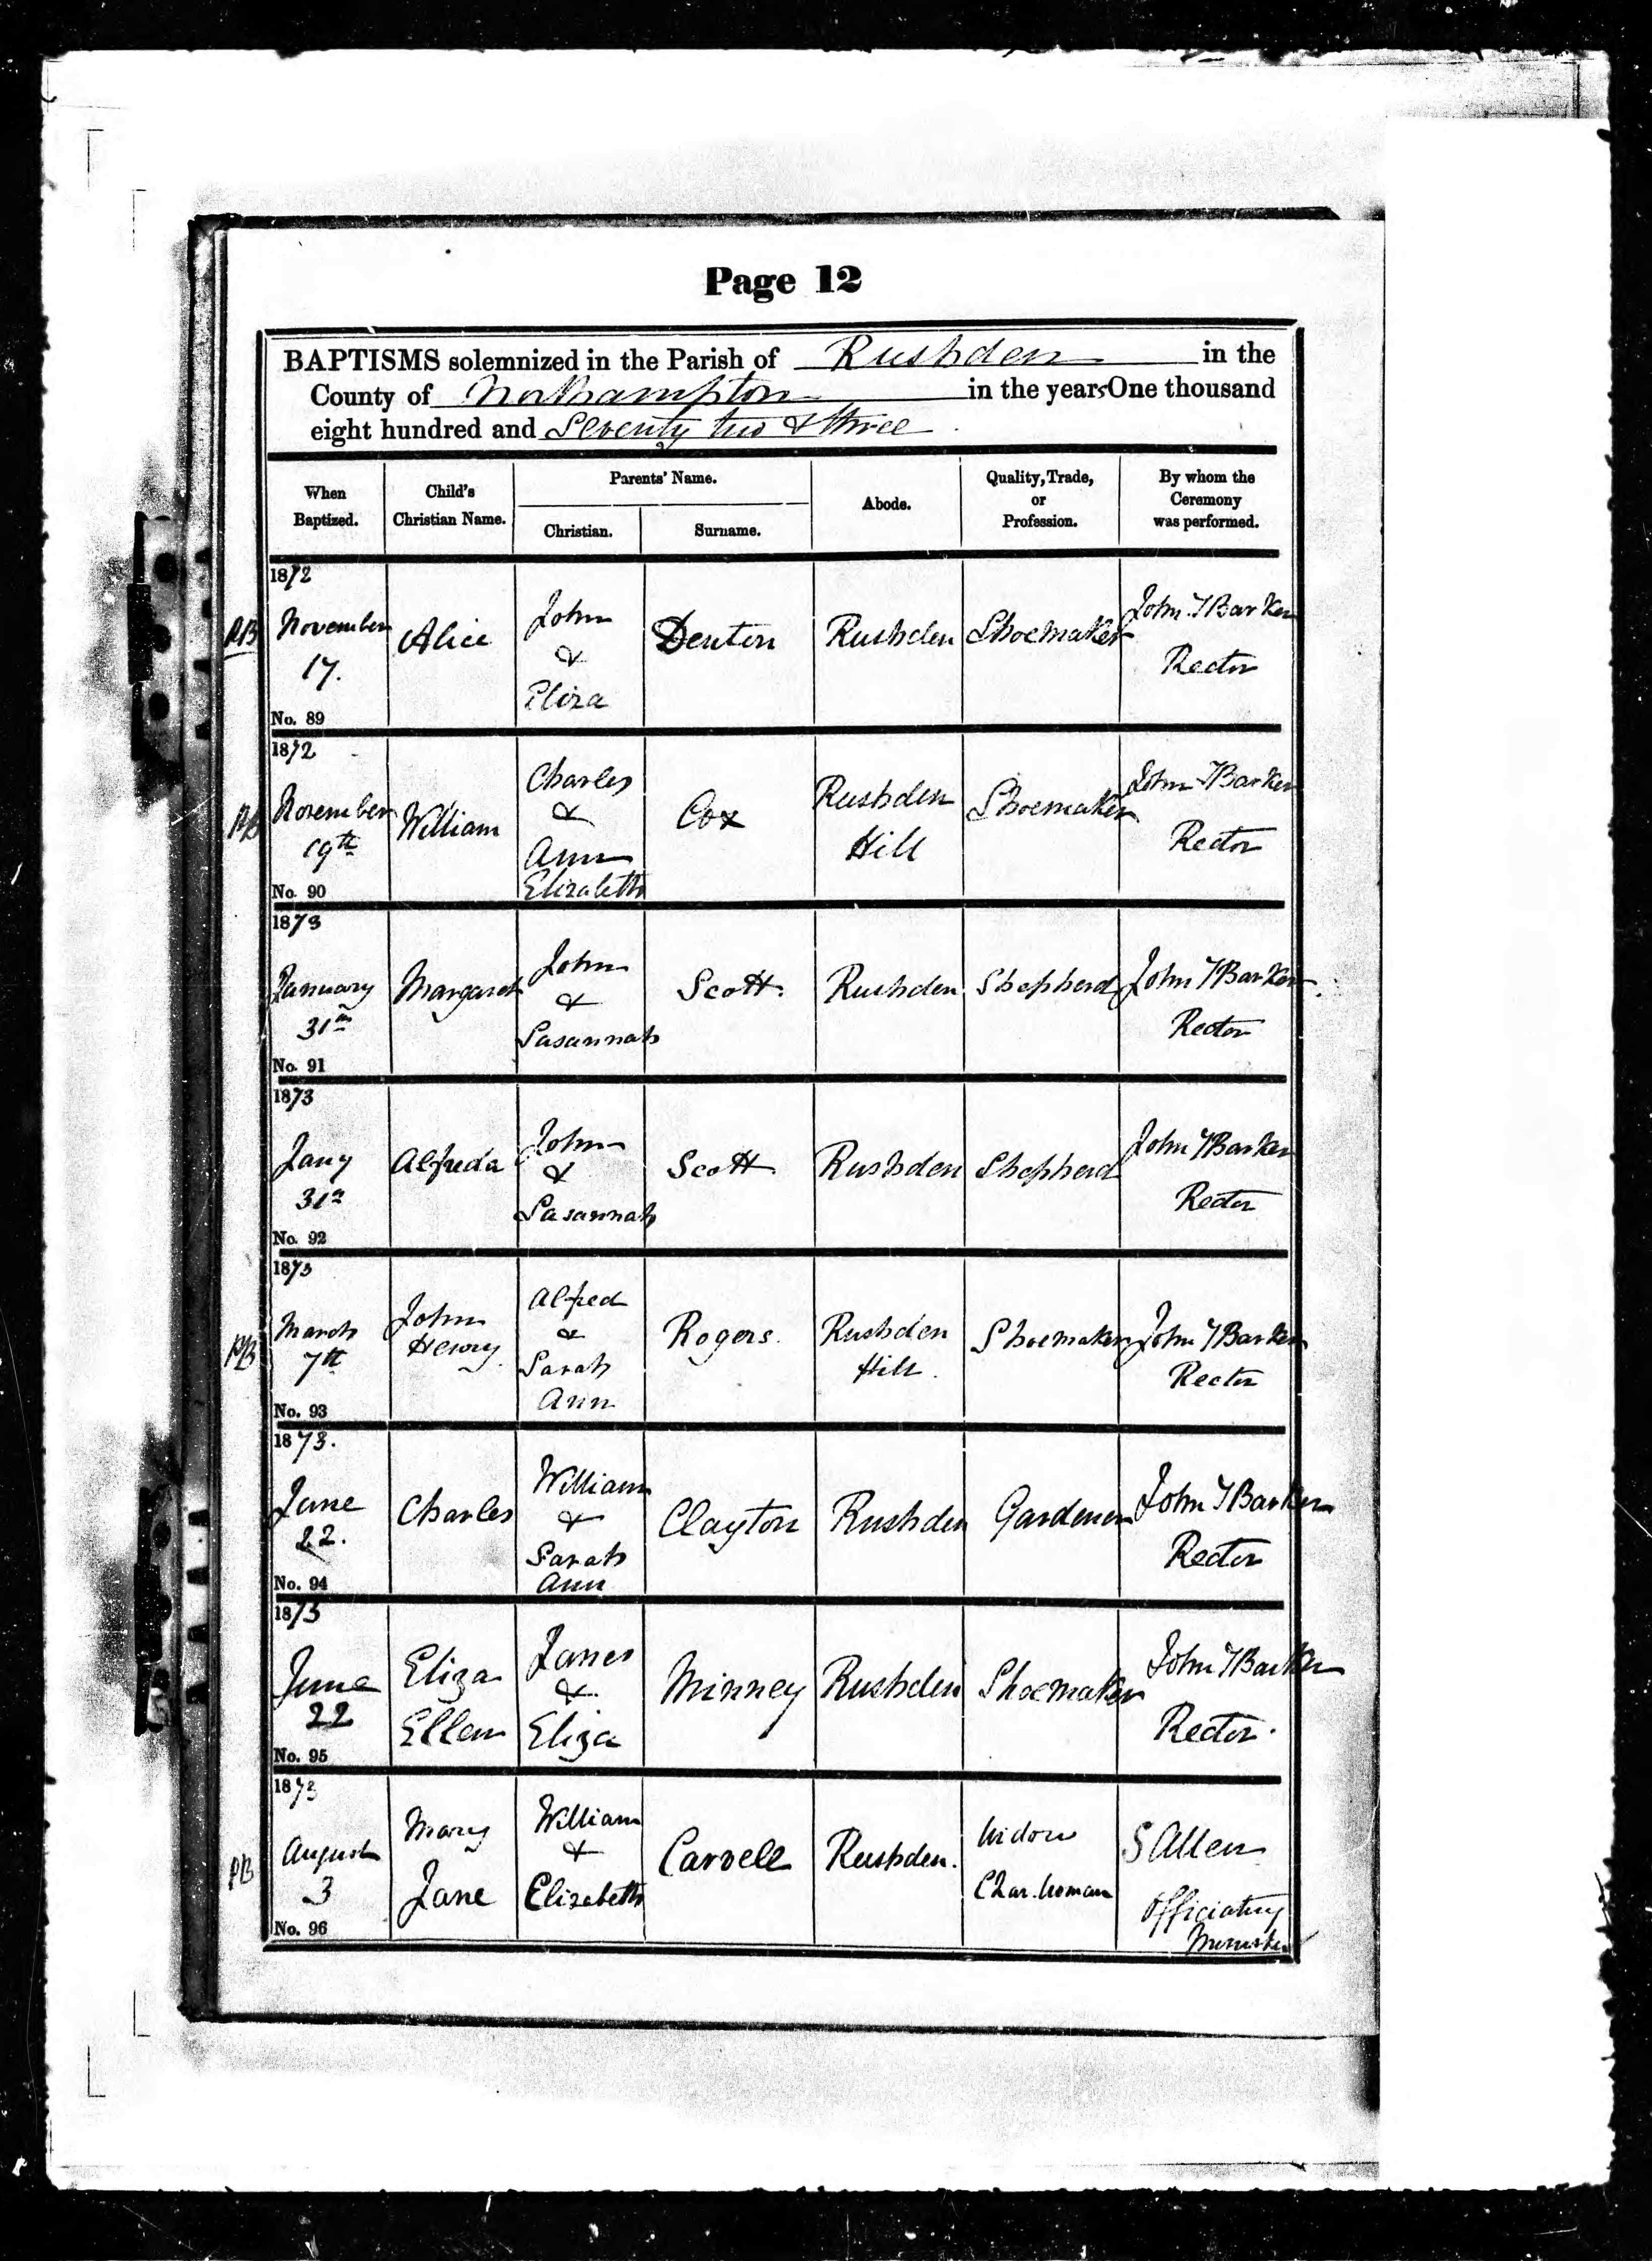 Page 12
BAPTISMS solemnized in the Parish of Rushden in the
County of Northampton in the years One thousand
eight hundred and Seventy two & three
When Baptized. Child's Christian Name. Parents' Name. Christian. Surname. Abode. Quality, Trade, or Profession. By whom the Ceremony was performed.
1872
PB November 17. Alice John & Eliza Denton Rushden Shoemaker John T Barker Rector
No. 89
1872
PB November 19th William Charles & Ann Elizabeth Cox Rushden Hill Shoemaker John T Barker Rector
No. 90
1873
January 31st Margaret John & Susannah Scott. Rushden Shepherd John T Barker Rector
No. 91
1873
Jany 31st Alfreda John & Susannah Scott Rushden Shepherd John T Barker Rector
No. 92
1873
PB March 7th John Henry Alfred & Sarah Ann Rogers. Rushden Hill. Shoemaker John T Barker Rector
No. 93
1873.
June 22. Charles William & Sarah Ann Clayton Rushden Gardener John T Barker Rector
No. 94
1873
June 22 Eliza Ellen James & Eliza Minney Rushden Shoemaker John T Barker Rector.
No. 95
1873
PB August 3 Mary Jane William & Elizabeth Carvell Rushden. Widow Char.woman S Allen Officiating Minister
No. 96